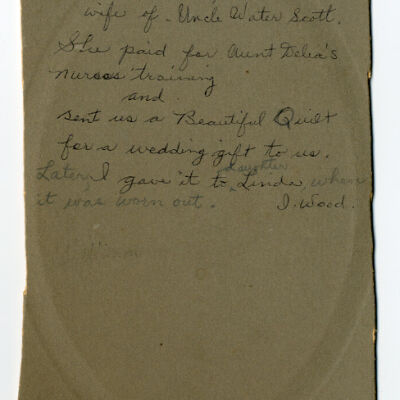 wife of - Uncle Water Scott.
She paid for Aunt Delia's
nurses training
and
sent us a Beautiful Quilt
for a wedding gift to us.
daughter
Later, I gave it to Linda, when
it was worn out. I. Wood.